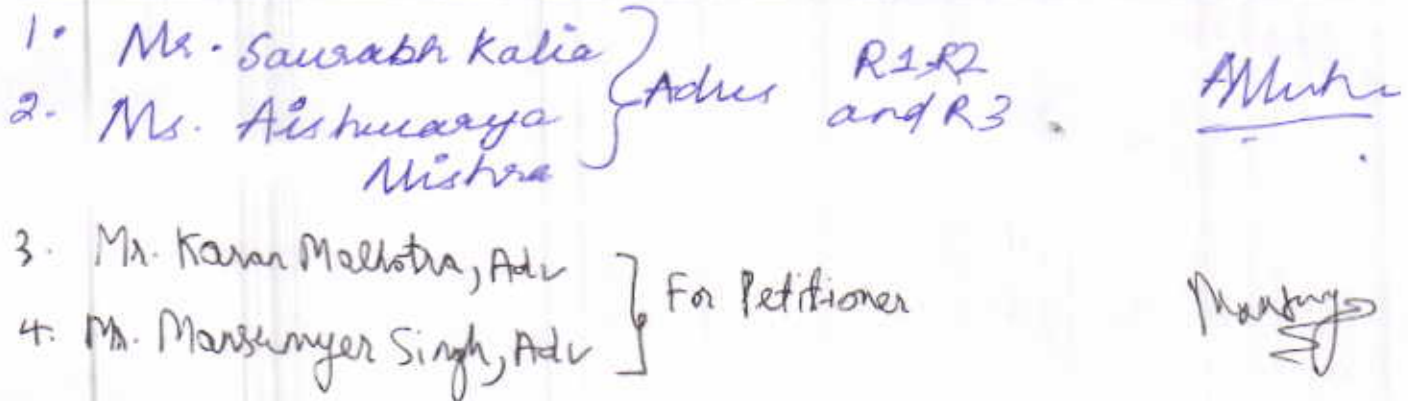 1. Mr. Saurabh Kalia
2. Ms. Aishwarya
Mishra
} Advs R1, R2
and R3.
3. Mr. Karan Malhotra, Adv
4. Mr. Mansumyer Singh, Adv
} For Petitioner